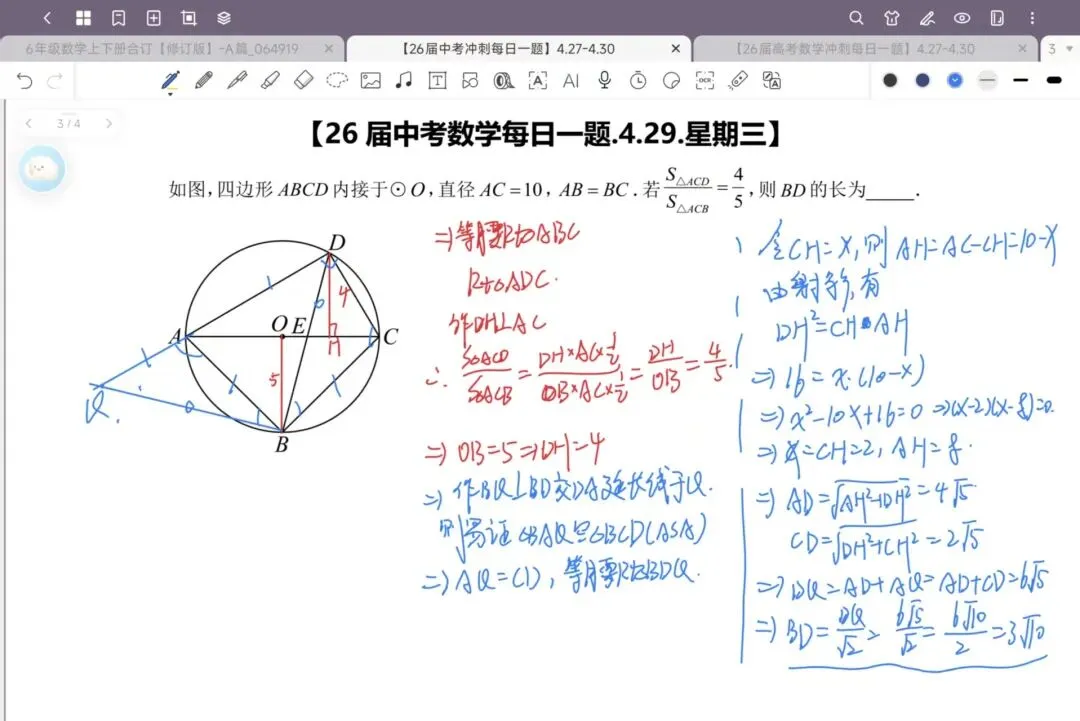 6年级数学上下册合订【修订版】-A篇_064919
【26届中考冲刺每日一题】4.27-4.30
【26届高考数学冲刺每日一题】4.27-4.30
3
T
A
AI
OCR
3 / 4
【26 届中考数学每日一题.4.29.星期三】
如图，四边形 ABCD 内接于⊙ O，直径 AC =10，AB = BC．若 S△ACD/S△ACB = 4/5，则 BD 的长为_____．
D
4
A
O E
H
C
5
Q.
B
⇒等腰Rt△ABC
Rt△ADC.
作DH⊥AC
∴ S△ACD/S△ACB = DH×AC×1/2 / OB×AC×1/2 = DH/OB = 4/5.
⇒ OB=5 ⇒ DH=4
⇒ 作BQ⊥BD交DA延长线于Q.
则易证△BAQ≌△BCD(ASA)
⇒ AQ=CD, 等腰Rt△BDQ.
令CH=x,则 AH=AC-CH=10-x
由射影,有
DH²=CH·AH
⇒ 16=x·(10-x)
⇒ x²-10x+16=0 ⇒(x-2)(x-8)=0.
⇒ x=CH=2, AH=8.
⇒ AD=√AH²+DH²=4√5
CD=√DH²+CH²=2√5
⇒ DQ=AD+AQ=AD+CD=6√5
⇒ BD=DQ/√2=6√5/√2=6√10/2=3√10